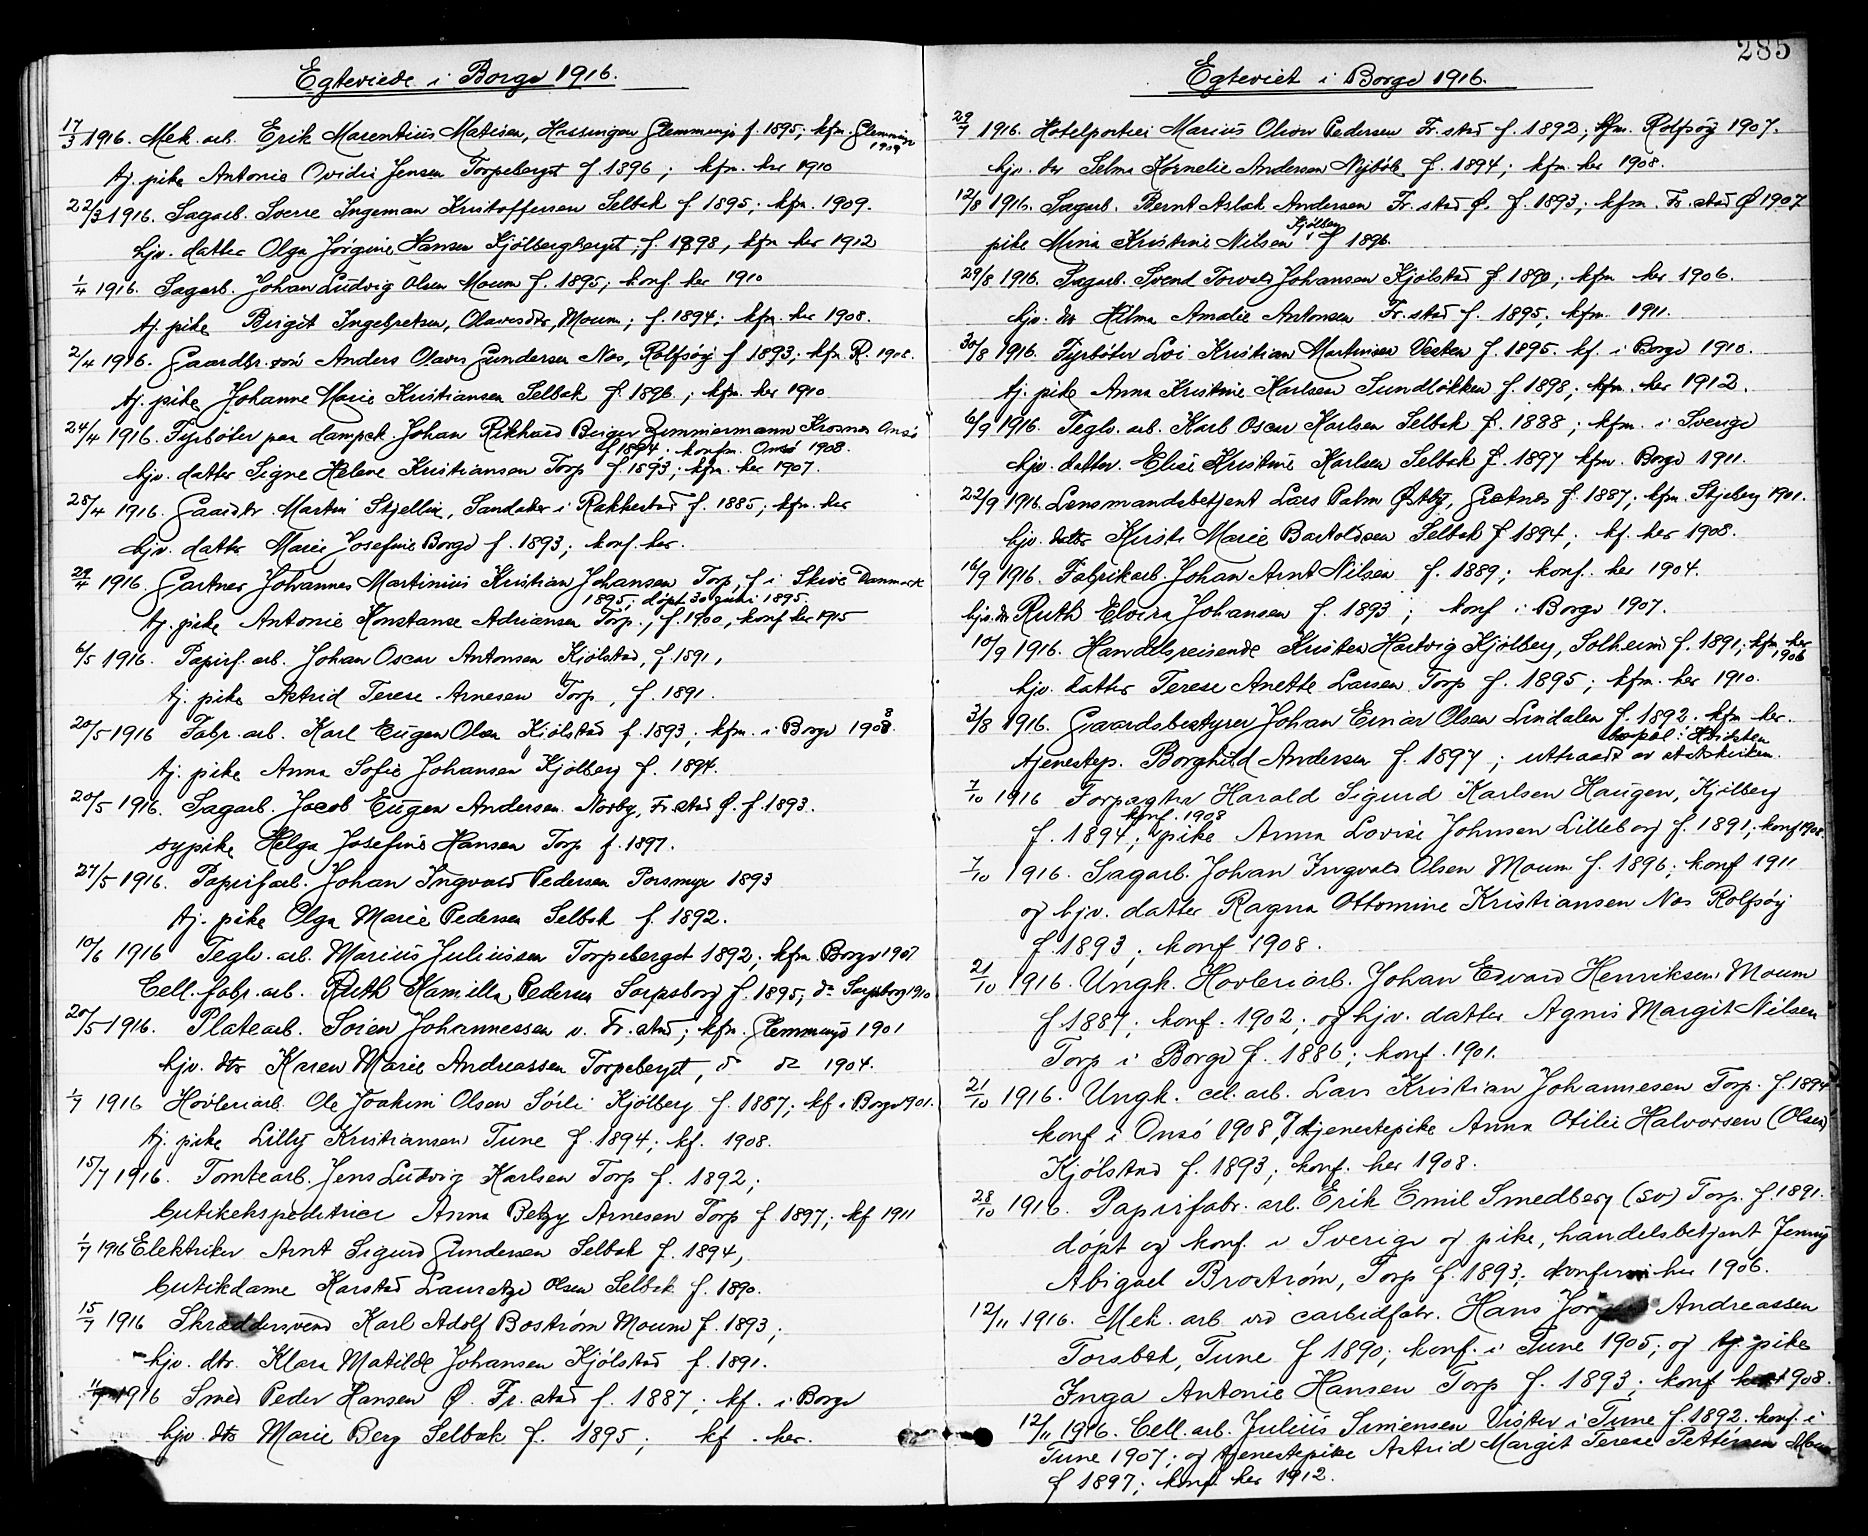 Egteviede i Borge 1916.
17/3 1916. Mek. arb. Erik Marentius Matisen, Hassingen Glemminge f. 1895; kfm. Glemminge
1909
tj. pike Antonie Ovidie Jensen Torpeberget f. 1896; kfm. her 1910
22/3 1916. Sagarb. Sverre Ingeman Kristoffersen Selbak f. 1895; kfm. 1909.
hjv. datter Olga Jørgine Hansen Kjölbergberget; f. 1898, kfm her 1912
1/4 1916. Sagarb. Johan Ludvig Olsen Moum f. 1895; konf. her 1910
tj. pike Birgit Ingebretsen, Olavesdtr, Moum; f. 1894; kfm. her 1908.
2/4 1916. Gaardbr. sön Anders Olaves Gundersen Nes, Rolfsöy f 1893; kfm R. 1908.
tj. pike Johanne Marie Kristiansen Selbak f. 1896.; kfm. her 1910
24/4 1916. Fyrböter paa dampsk. Johan Rikhard Birger Zimmermann Krosnes Onsö
f 1894; konfm. Onsö 1908.
hjv. datter Signe Helene Kristiansen Torp f 1893; kfm. her 1907.
28/4 1916. Gaardbr. Martin Skjellin, Sandaker i Rakkestad f. 1885; kfm. her
hjv. datter Marie Josefine Borge f. 1893; konf. her.
29/4 1916. Gartner Johannes Martinius Kristian Johansen Torp, f i Skive Danmark
1895; döpt 30 juni 1895.
tj. pike Antonie Konstanse Adriansen Torp.; f. 1900, konf her 1915
6/5 1916. Papirf. arb. Johan Oscar Antonsen Kjölstad, f. 1891,
tj. pike Astrid Terese Arnesen Torp, f. 1891.
20/5 1916 Fabr. arb. Karl Eugen Olsen Kjölstad f. 1893; kfm. i Borge 1908.
tj. pike Anna Sofie Johansen Kjölberg f. 1894.
20/5 1916. Sagarb. Jacob Eugen Andersen Norby, Fr.stad Ø. f. 1893.
sypike Helga Josefine Hansen Torp f. 1897.
27/5 1916. Papirfarb. Johan Ingvald Pedersen Porsmyr 1893
tj. pike Olga Marie Pedersen Selbak f. 1892.
10/6 1916 Teglv. arb. Marius Juliussen Torpeberget 1892; kfm. Borge 1907
Cell. fabr. arb. Ruth Kamilla Pedersen Sarpsborg f. 1895; do Sarpsborg 1910
20/5 1916. Platearb. Sören Johannessen v. Fr.stad; kfm. Glemminge 1901
hjv. dtr Karen Marie Andreassen Torpeberget, do do 1904.
1/7 1916 Hovleriarb. Ole Joakim Olsen Sörli Kjölberg f. 1887; kf i Borge 1901.
tj. pike Lilly Kristiansen Tune f 1894; kf. 1908.
15/7 1916. Tomtearb. Jens Ludvig Karlsen Torp f. 1892;
butikekspeditrice Anna Betzy Arnesen Torp f 1897; kf 1911
1/7 1916 Elektriker Arnt Sigurd Gundersen Selbak f. 1894,
butikdame Harstad Lauretze Olsen Selbak f. 1890.
15/7 1916 Skræddersvend Karl Adolf Boström Moum f. 1893;
hjv. dtr. Klara Matilde Johansen Kjölstad f. 1891.
1916 Smed Peder Hansen Ø. Fr.stad f. 1887; kf. i Borge
hjv. dtr Marie Berg Selbak f. 1895; kf. her.
285
Egteviet i Borge 1916.
29/7 1916. Hotelportier Marius Oliver Pedersen Fr.stad f. 1892; kfm. Rolfsöy 1907.
hjv. dr Selma Kornelie Andersen Nyböle f. 1894; kfm. her 1908.
12/8 1916. Sagarb. Bernt Aslak Andersen Fr.stad Ø. f. 1893; kfm Fr.stad Ø 1907
Kjölberg
pike Mina Kristine Nilsen f 1896.
29/8 1916. Sagarb. Svend Torvald Johansen Kjölstad f. 1890; kfm her 1906.
hjv. dr Hilma Amalie Antonsen Fr.stad f. 1895; kfm. 1911.
30/8 1916. Fyrböter Lvi Kristian Martinsen Vesten f. 1895. kf. i Borge 1910.
tj. pike Anna Kristine Karlsen Sundlökken f. 1898; kfm. her 1912.
6/9 1916. Teglv. arb. Karl Oscar Karlsen Selbak f. 1888; kfm. i Sverige
hjv. datter Elise Kristine Karlsen Selbak f. 1897 kfm. Borge 1911.
22/9 1916. Lensmandsbetjent Lars Palm Østby, Grætnes f. 1887; kfm. Skjeberg 1901.
hjv. datter Kirsti Marie Bartoldsen Selbak f 1894; kf. her 1908.
16/9 1916. Fabrikarb. Johan Arnt Nilsen f. 1889; konf. her 1904.
hjv. dr Ruth Elvira Johansen f. 1893; konf i Borge 1907.
10/9 1916. Handelsreisende Kristen Hartvig Kjölberg, Solheim f. 1891; kfm her
1906
hjv. datter Terese Anette Larsen Torp f. 1895; kfm. her 1910.
3/8 1916. Gaardsbestyrer Johan Einar Olsen Lindalen f. 1892. kfm her.
bopæl: Hvidsten
tjenestep. Borghild Andersen f. 1897; uttraadt av statskirken.
7/10 1916 Forpagter Harald Sigurd Karlsen Haugen, Kjölberg
konf. 1908
f. 1894; pike Anna Lovise Johnsen Lilleborg f. 1891; konf 1908.
7/10 1916. Sagarb. Johan Ingvald Olsen Moum f. 1896; konf 1911
og hjv. datter Ragna Ottomine Kristiansen Nes Rolfsöy
f. 1893; konf 1908.
21/10 1916. Ungk. Hovleriarb. Johan Edvard Henriksen Moum
f 1887; konf. 1902; og hjv. datter Agnis Margit Nilsen
Torp i Borge f. 1886; konf. 1901.
21/10 1916. Ungk. cel. arb. Lars Kristian Johannesen Torp. f. 1894
konf i Onsö 1908, og tjenestepike Anna Otilie Halvorsen (Olsen)
Kjölstad f. 1893; konf. her 1908.
28/10 1916. Papirfabr. arb. Erik Emil Smedberg (sv) Torp. f. 1891.
döpt og konf. i Sverige og pike, handelsbetjent Jenny
Abigael Broström, Torp f. 1893; konfirm her 1906.
12/11 1916. Mek. arb ved carbidfabr. Hans Jörgen Andreassen
Torsbæk, Tune f 1890; konf. i Tune 1905; og tj. pike
Inga Antonie Hansen Torp f. 1893; konf her 1908.
12/11 1916. Cell. arb. Julius Simensen Vister i Tune f. 1892. konf. i
Tune 1907; og tjenestepike Astrid Margit Terese Pettersen Moum
f 1897; konf. her 1912.